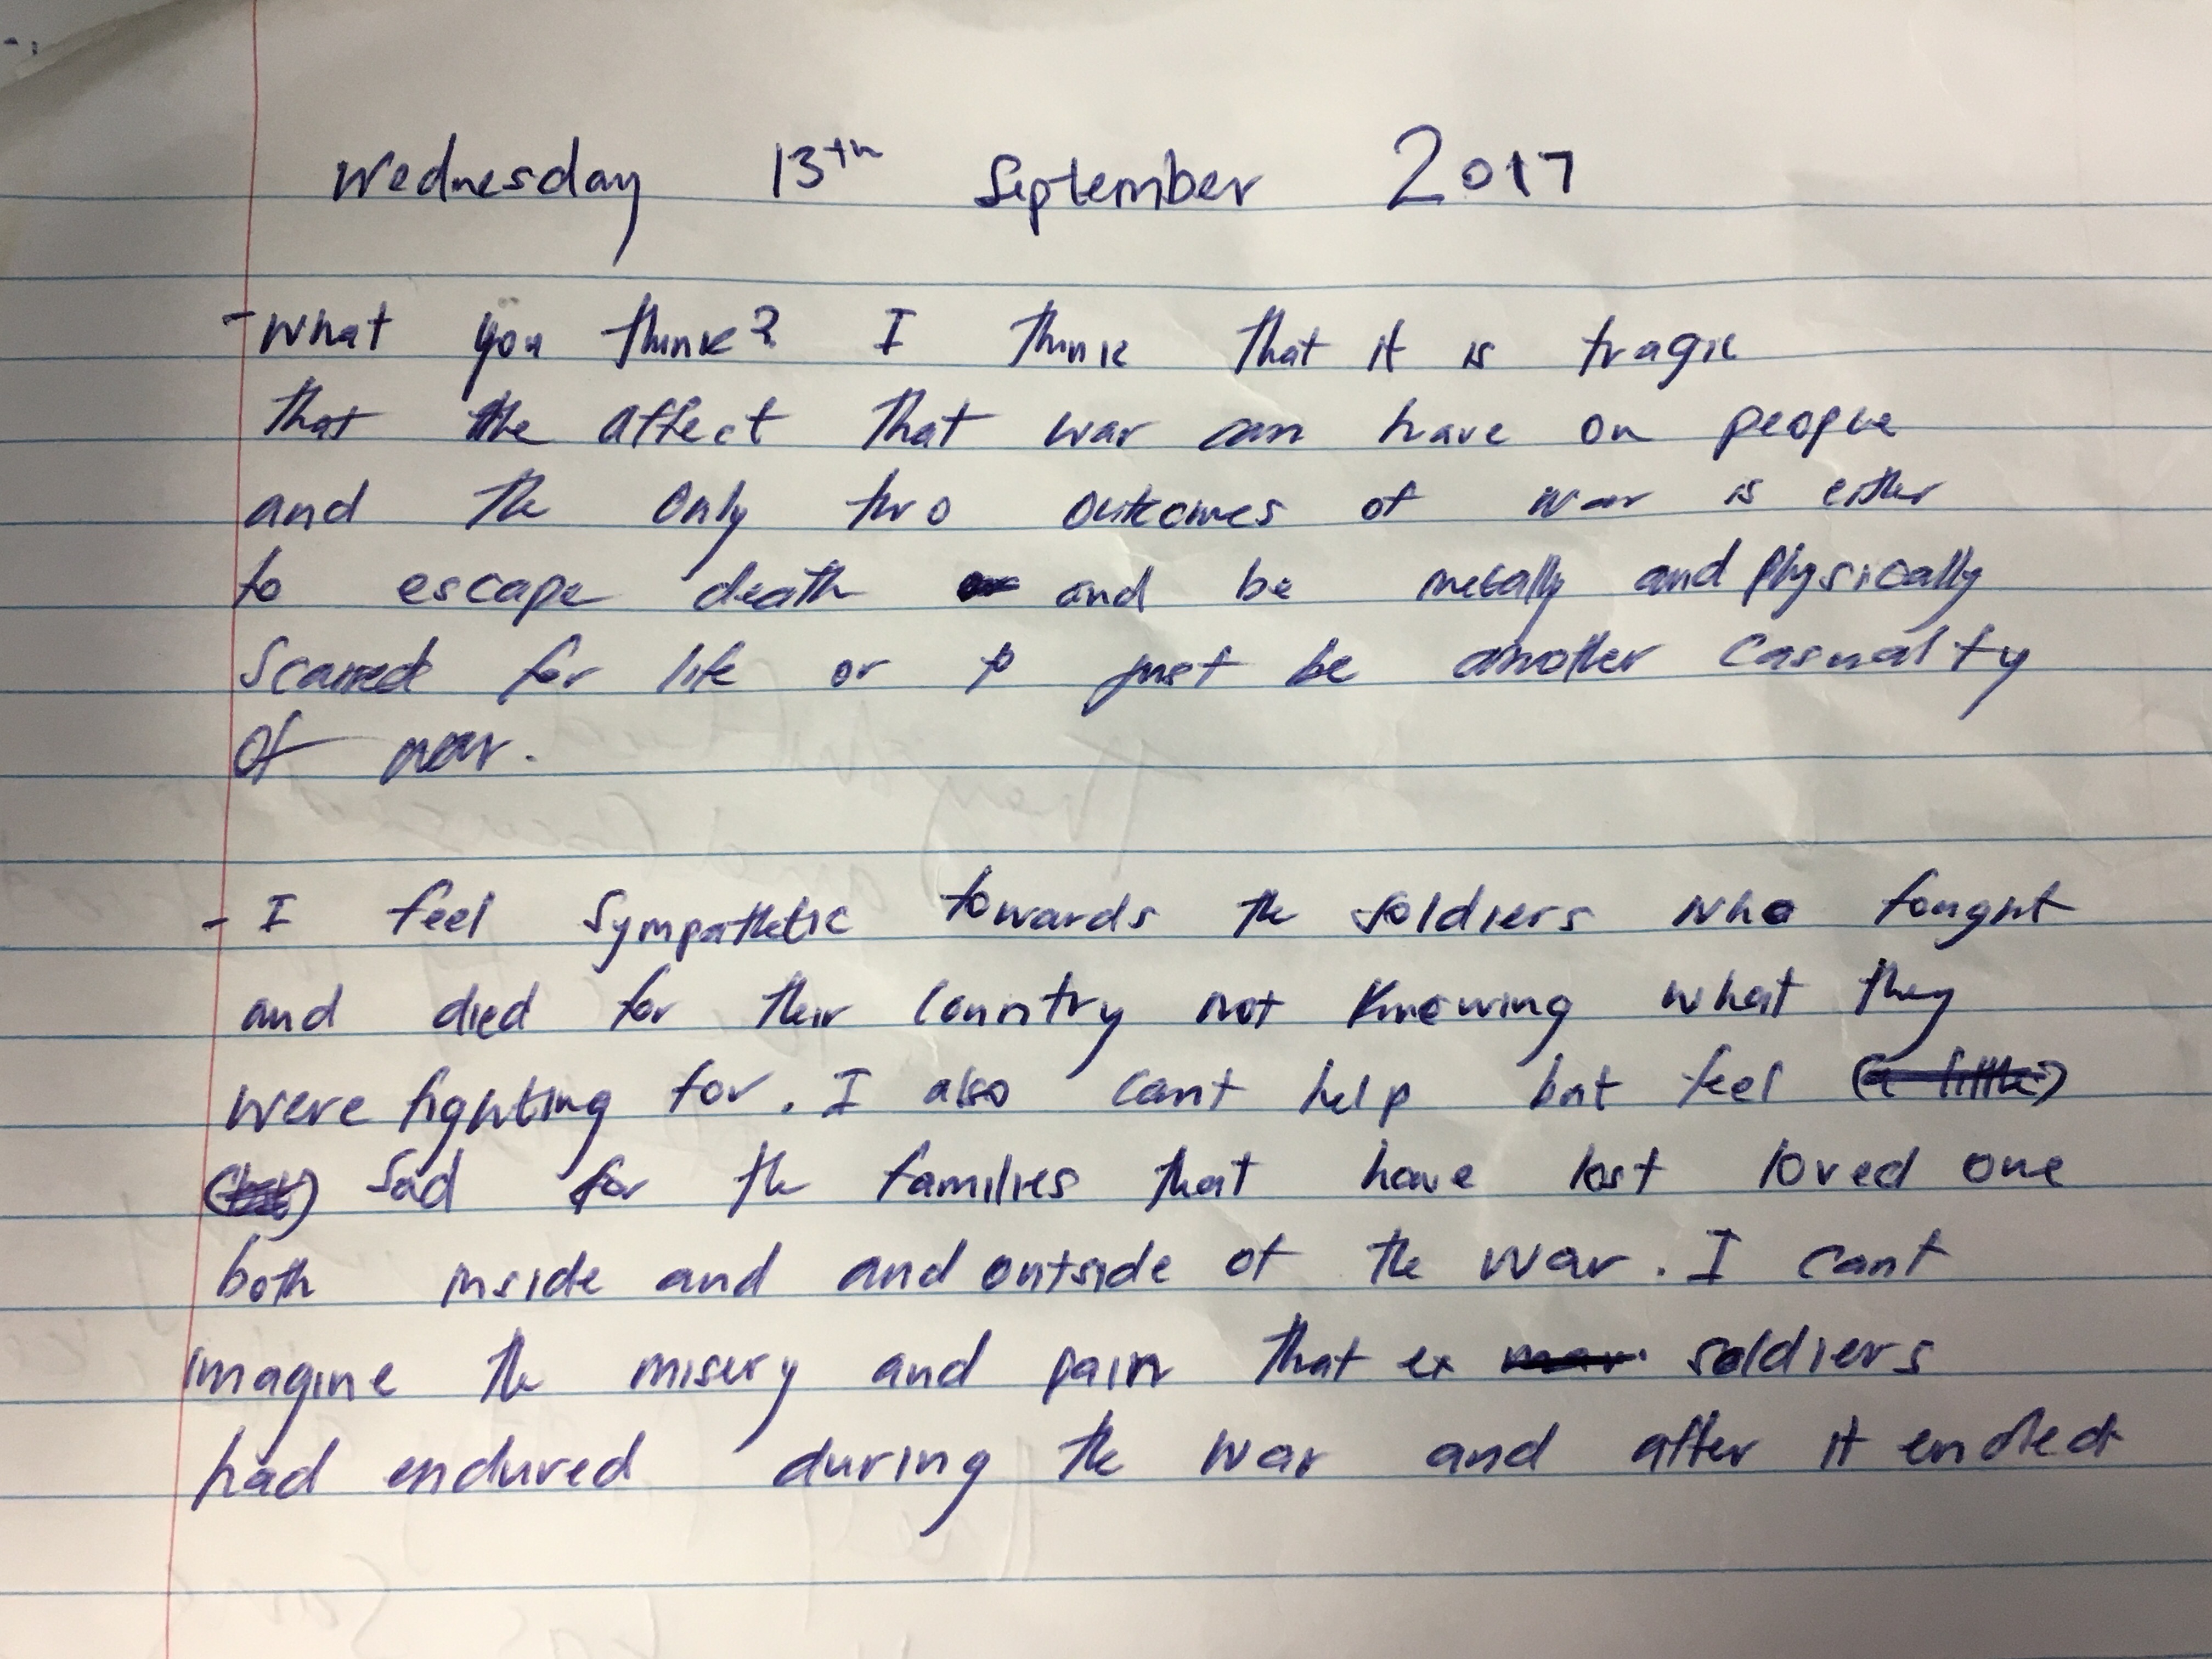 Wednesday 13th September 2017
- What you think? I think that it is tragic
that the affect that war can have on people
and the only two outcomes of war is either
to escape death and be metally and physically
Scarred for life or to just be another casualty
Of war.
- I feel Sympathetic towards the soldiers who fought
and died for their country not knowing what they
were fighting for. I also cant help but feel (a little)
Sad for the families that have lost loved one
both inside and and outside of the war. I cant
imagine the misery and pain that ex soldiers
had endured during the war and after it ended